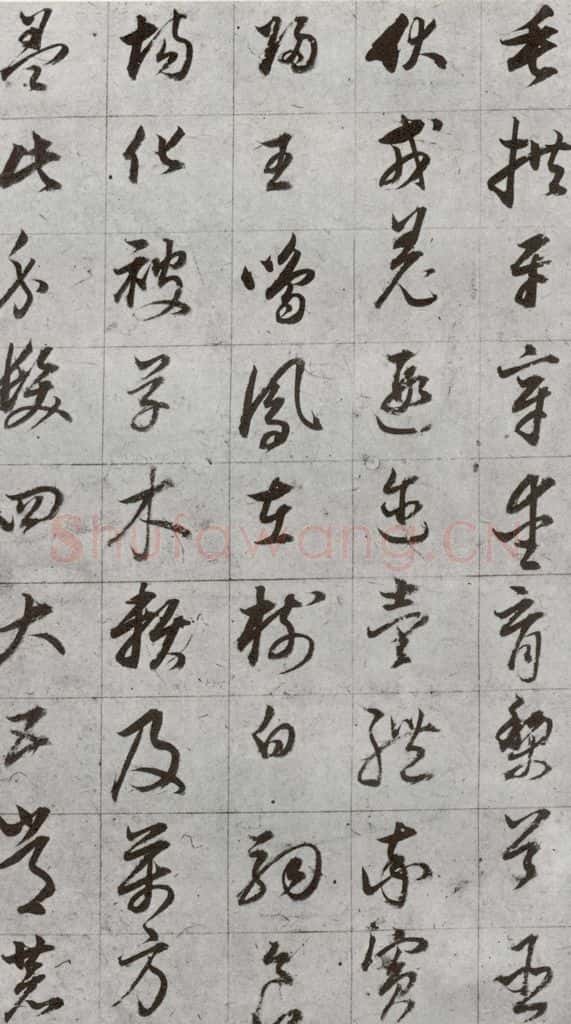 垂拱平章愛育黎首臣
伏戎羌遐迩壹體率賓
歸王鳴鳳在樹白駒食
場化被草木賴及萬方
蓋此身髮四大五常恭
Shufawang.CN